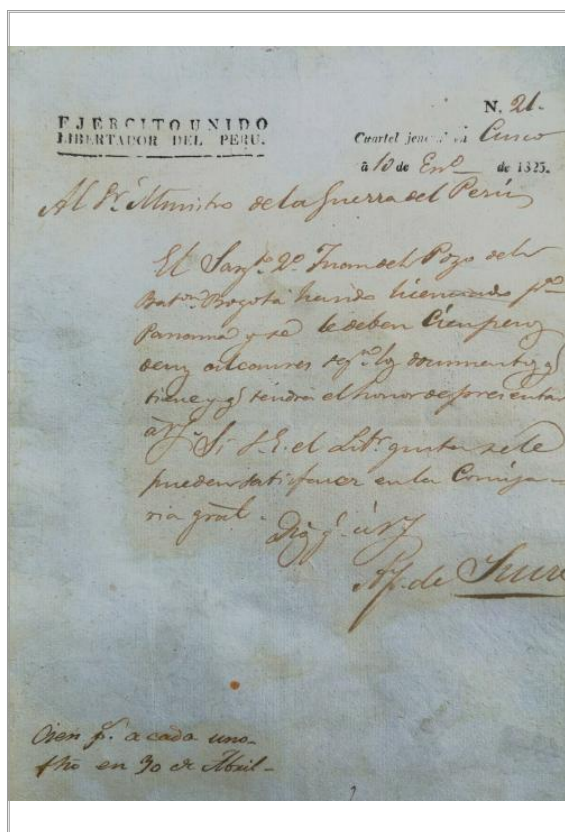 N. 21.
EJERCITO UNIDO
LIBERTADOR DEL PERU.
Cuartel jeneral en Cusco
à 10 de En.º de 1825.
Al S.r Ministro de la Guerra del Perú
El Sarj.to 2.º Juan del Pozo del
Bat.on Bogotá ha sido licenciado p.a
Panamá y se le deben Cien pesos
de sus alcances seg.n los documentos q.e
tiene y q.e tendrá el honor de presentar
à VS. Si S. E. el Lib.r gusta se le
pueden satisfacer en la Comisa-
ria gral.
Dios g.e à VS.
A. J. de Sucre
Cien p.s a cada uno
fho en 30 de Abril